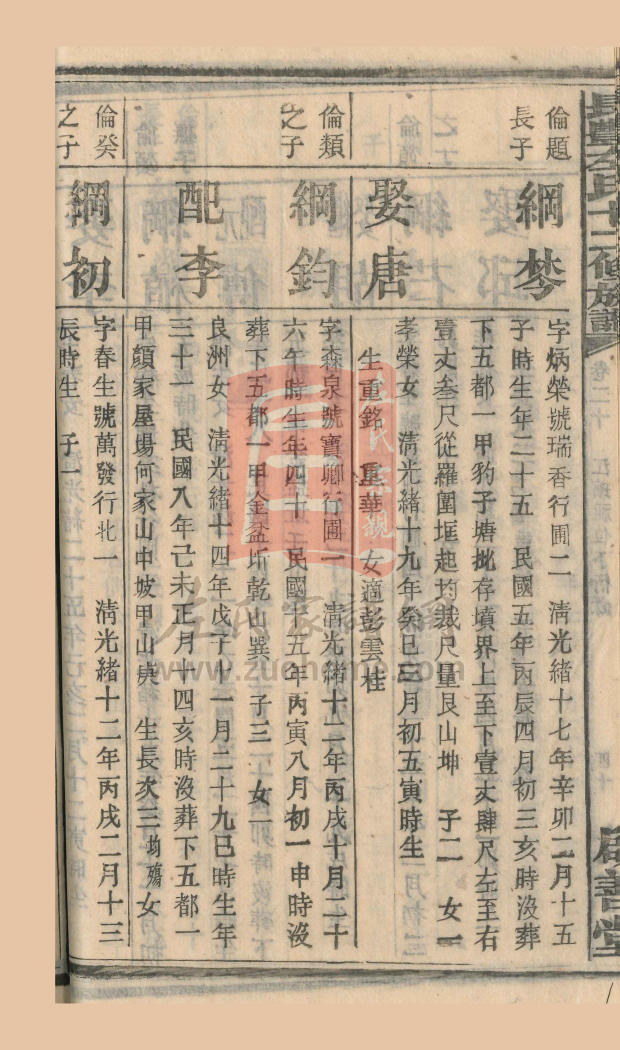 長豐左氏十二修族譜
卷二十
四十
啟善堂
倫題
長子
綱棼
字炳榮號瑞香行圃二 清光緒十七年辛卯二月十五
子時生年二十五 民國五年丙辰四月初三亥時沒葬
下五都一甲豹子塘批存墳界上至下壹丈肆尺左至右
壹丈叁尺從羅圍堳起均裁尺量艮山坤 子二 女一
娶唐
孝榮女 清光緒十九年癸巳三月初五寅時生
生重銘 重華 女適彭雲桂
倫類
之子
綱鈞
字森泉號寶卿行圃一 清光緒十二年丙戌十月二十
六午時生年四十 民國十五年丙寅八月初一申時沒
葬下五都一甲金盆圻乾山巽 子三 女一
配李
良洲女 清光緒十四年戊子十一月二十九巳時生年
三十一 民國八年己未正月十四亥時沒葬下五都一
甲顏家屋場何家山中坡甲山庚 生長次三均殤女
倫癸
之子
綱初
字春生號萬發行北一 清光緒十二年丙戌二月十三
辰時生 子一
左氏家譜網
www.zuoname.com